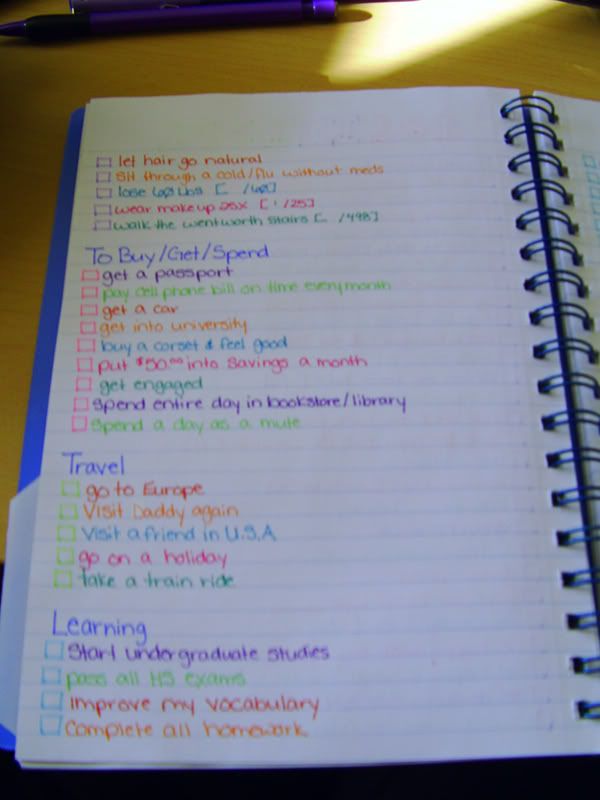 let hair go natural
SH through a cold/flu without meds
lose 60 Lbs [ /60]
wear makeup 25x [ 1 /25]
walk the wentworth stairs [ /498]
To Buy/Get/Spend
get a passport
pay cell phone bill on time everymonth
get a car
get into university
buy a corset & feel good
put $50.00 into savings a month
get engaged
Spend entire day in bookstore/library
Spend a day as a mute
Travel
go to Europe
Visit Daddy again
Visit a friend in U.S.A
go on a holiday
take a train ride
Learning
Start undergraduate studies
pass all HS exams
improve my vocabulary
Complete all homework